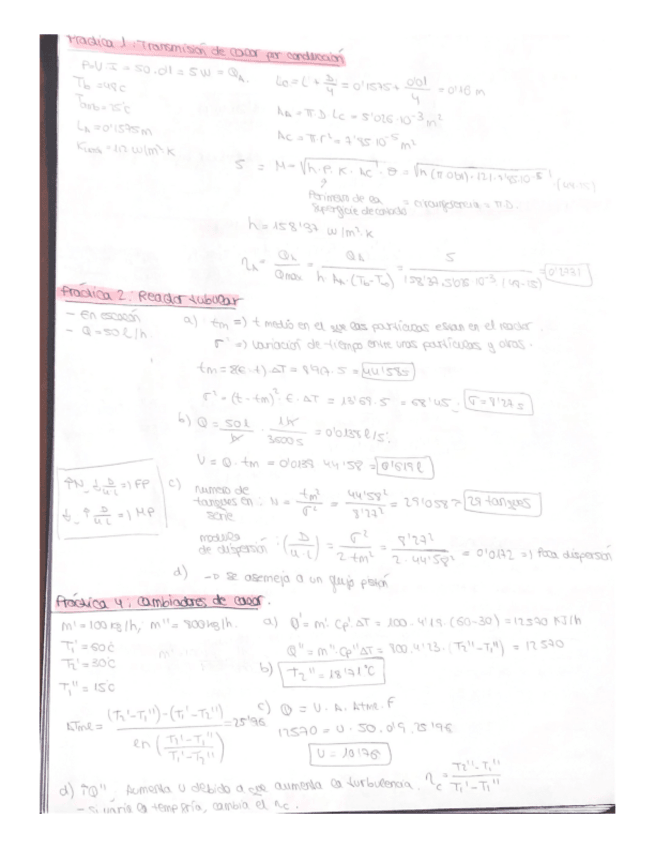 Práctica 1: Transmisión de calor por conducción
P=U·I = 50·0'1 = 5W = QA.
Lc = L + D/4 = 0'1575 + 0'01/4 = 0'16 m
Tb = 49ºC
Tamb = 15ºC
AA = π D Lc = 5'026·10⁻³ m²
LA = 0'1575m
Ac = π r² = 7'85·10⁻⁵ m²
5 = M = √h·P·K·Ac · θ =
Perímetro de la superficie de contacto = circunferencia = π D.
h = 158'37 W/m²·K
ηA = QA/Qmax = QA/(h·AA·(Tb-To)) = 5/(158'37·5'026·10⁻³
Práctica 2: Reactor tubular
- En escalón
- Q = 50 l/h.
a) tm => t medio en el que las partículas están en el reactor.
σ² => variación de tiempo entre unas partículas y otras.
ΔT = · 5 = 44'58s
σ² = (t - tm)²·E·ΔT = 13'69·5 = 68'45 . σ = 8'27 s
b) Q = 50 l/h · 1h/3600s = 0'0138 l/s.
V = Q·tm = 0'0138·44'58 = 0'619 l
↑N, ↓ D/u·L => FP
↓, ↑ D/u·L => MP
c) número de tanques en serie : N = tm²/σ² = 44'58²/8'27² = 29'058 => 29 tanques
módulo de dispersión : (D/u·L) = σ²/2·tm² = 8'27²/2·44'58² = 0'0172 => Poca dispersión
d) -> se asemeja a un flujo pistón
Práctica 4: Cambiadores de calor.
m' = 100 kg/h, m'' = 800 kg/h.
a) Q' = m'·Cp'·ΔT = 100·4'19·(60-30) = 12570 KJ/h
T1' = 60ºC
T2' = 30ºC
Q'' = m''·Cp''ΔT = 800·4'23·(T2''-T1'') = 12570
T1'' = 15ºC
b) T2'' = 18'71ºC
ΔTml = (T2'-T1'')-(T1'-T2'') / ln = 25'96
c) Q = U·A·ΔTml·F
12570 = U·50·0'9·25'96
U = 10'76
d) ↑Q'' Aumenta U debido a que aumenta la turbulencia. ηc = T2''-T1''/T1'-T1''
- Si varía la temp fría, cambia el ηc.